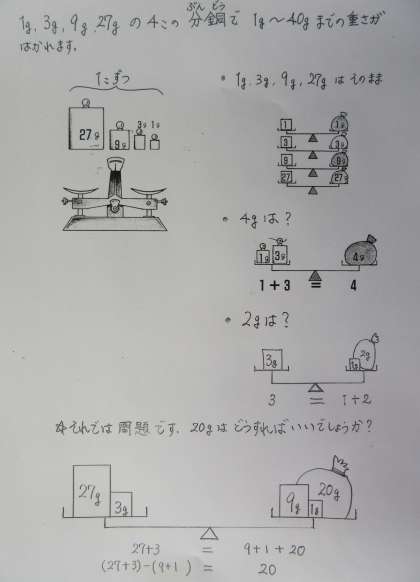 1g, 3g, 9g, 27g の 4この 分銅で 1g〜40gまでの重さが
ぶん どう
はかれます。
1こずつ
27g
9g
3g 1g
• 1g, 3g, 9g, 27g は そのまま
1 1g
3 3g
9 9g
27 27g
• 4g は?
1g 3g 4g
1 + 3 = 4
• 2g は?
3g 1g 2g
3 = 1+2
それでは 問題です. 20gは どうすればいいでしょうか?
27g 3g 9g 1g 20g
27+3 = 9+1+20
(27+3)-(9+1) = 20